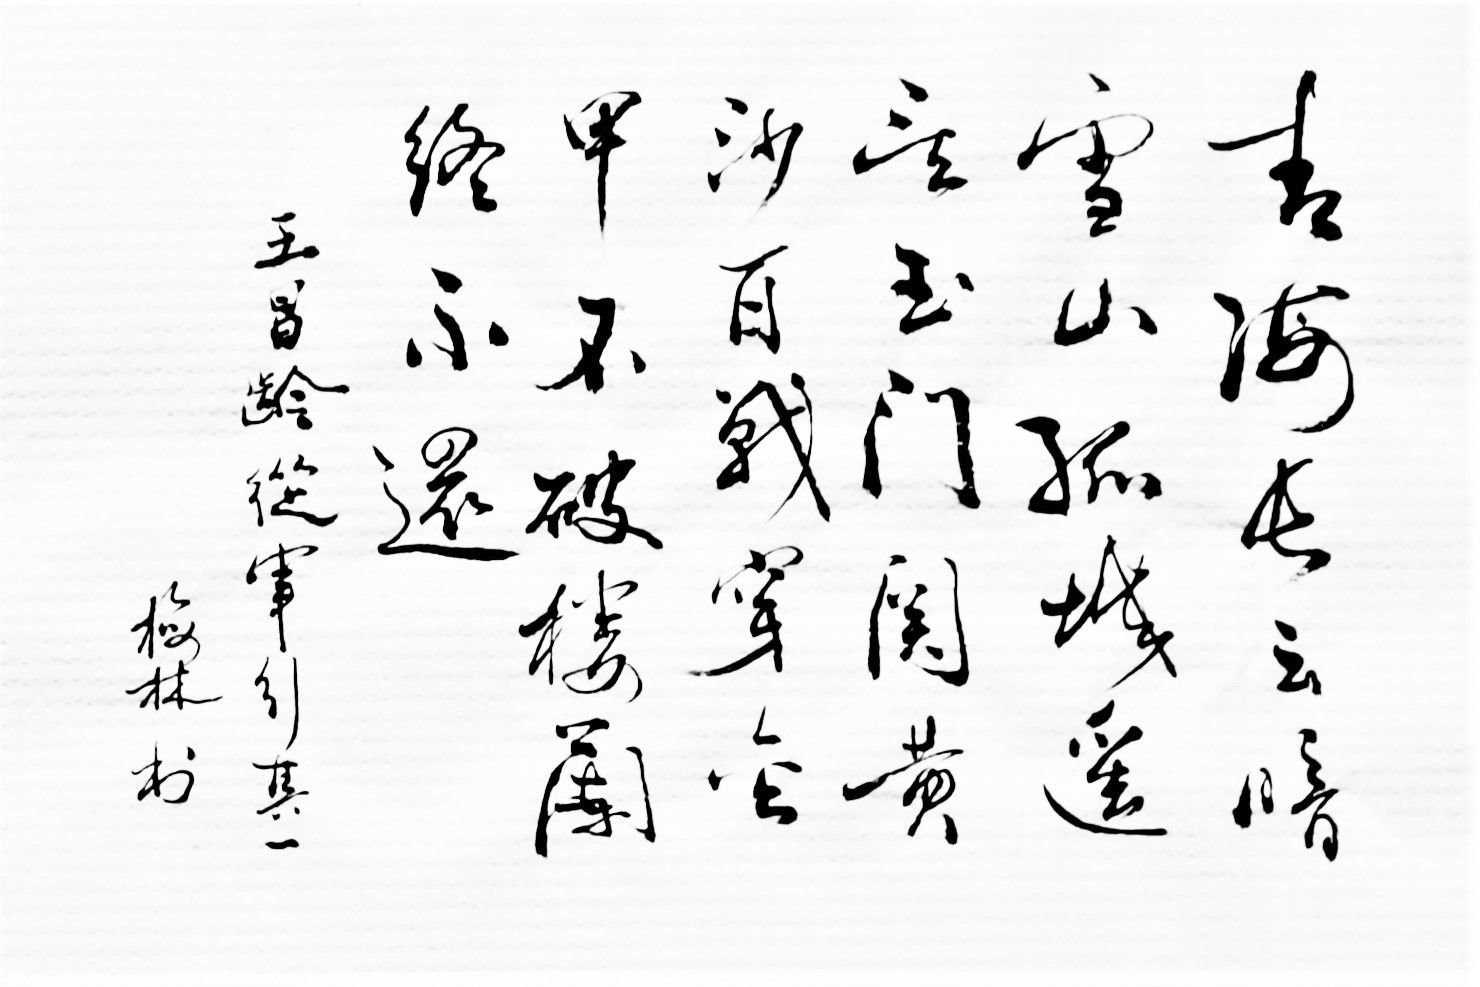 青海长云暗
雪山孤城遥
望玉门关黄
沙百战穿金
甲不破楼蘭
终不還
王昌龄從軍行其一
梅林